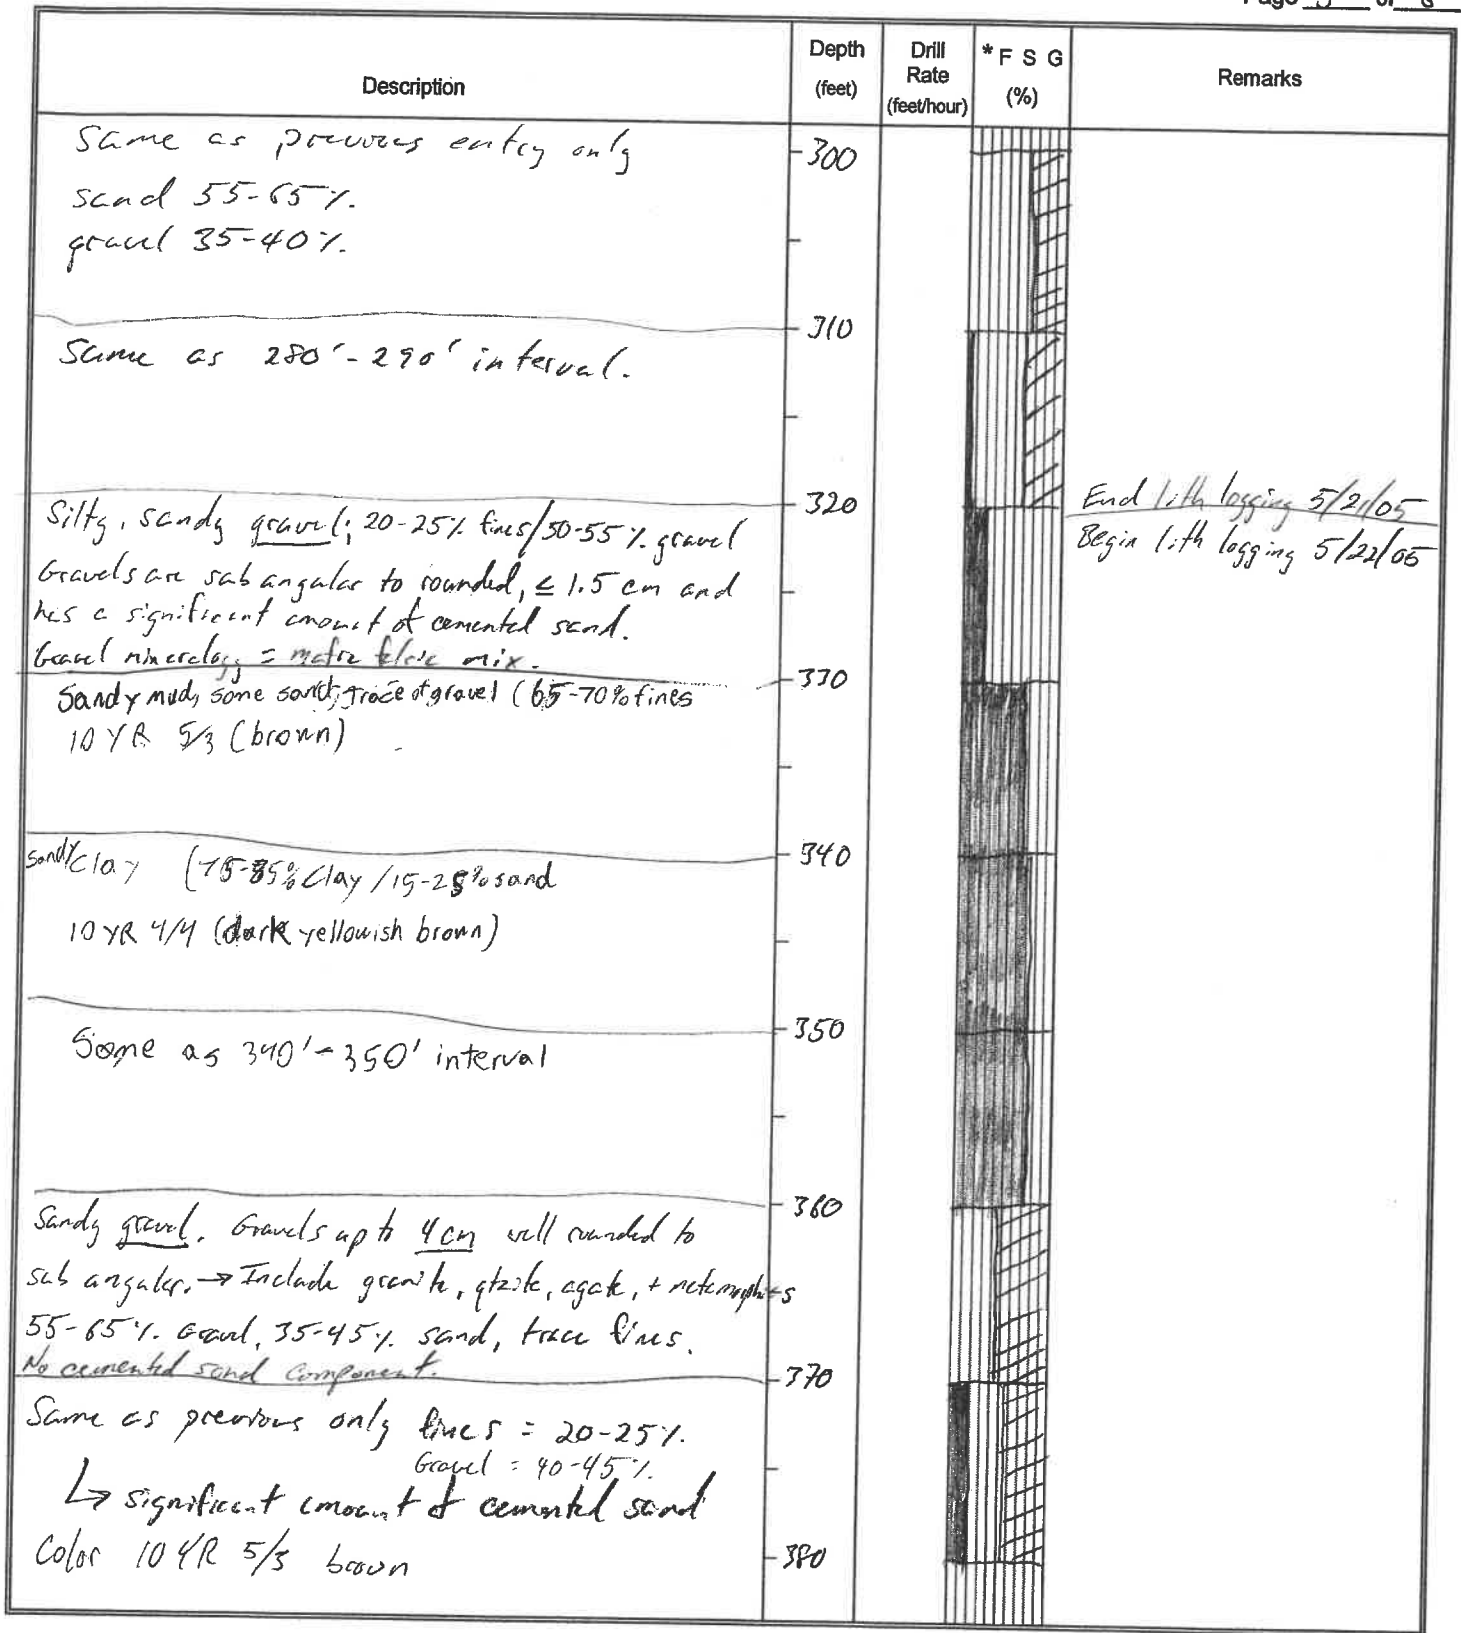 Page 5 of 8
Description
Depth
(feet)
Drill
Rate
(feet/hour)
* F S G
(%)
Remarks
Same as previous entry only
sand 55-65%.
gravel 35-40%.
300
310
Same as 280'-290' interval.
320
End lith logging 5/21/05
Begin lith logging 5/22/05
Silty, sandy gravel; 20-25% fines/50-55% gravel
Gravels are sub angular to rounded, ≤ 1.5 cm and
has a significant amount of cemented sand.
Gravel minerology = mafic felsic mix.
330
Sandy mud, some sand, trace of gravel (65-70% fines
10 YR 5/3 (brown)
340
Sandy Clay (75-85% Clay / 15-25% sand
10 YR 4/4 (dark yellowish brown)
350
Same as 340'-350' interval
360
Sandy gravel. Gravels up to 4 cm well rounded to
sub angular. → Include granite, qtzite, agate, + metamorphics
55-65% Gravel, 35-45% sand, trace fines.
No cemented sand component.
370
Same as previous only fines = 20-25%.
Gravel = 40-45%.
↳ significant amount of cemented sand
Color 10 YR 5/3 brown
380